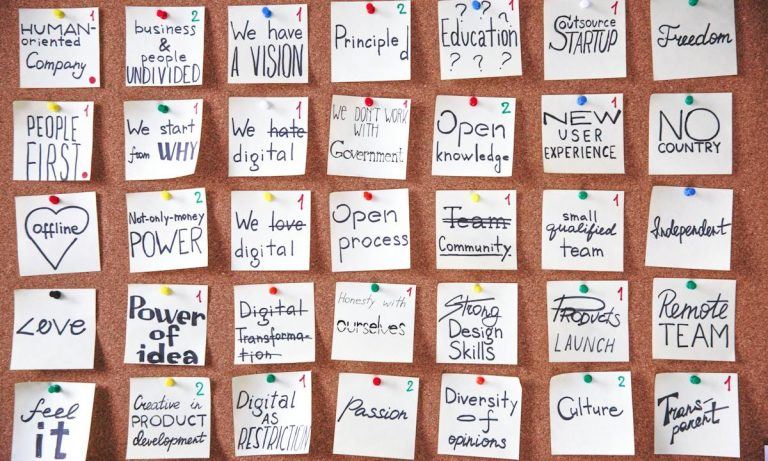 HUMAN-
oriented
Company
2
business
&
people
UNDIVIDED
1
We have
A VISION
2
Principled
1
? ? ?
Education
? ? ?
1
Outsource
STARTUP
Freedom
1
PEOPLE
FIRST.
1
We start
from WHY
1
We hate
digital
1
WE DON'T WORK
WITH
Government
2
Open
knowledge
1
NEW
USER
EXPERIENCE
NO
COUNTRY
offline
2
Not-only-money
POWER
1
We love
digital
Open
process
1
Team
Community.
1
small
qualified
team
Independent
Love
1
Power
of
idea
1
Digital
Transforma-
tion
1
Honesty with
ourselves
Strong
Design
Skills
1
Products
LAUNCH
Remote
TEAM
feel
it
2
Creative in
PRODUCT
development
1
Digital
AS
RESTRICTION
2
Passion
Diversity
of
opinions
2
Culture
1
Trans-
parent